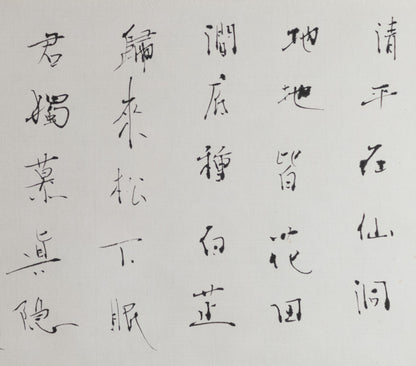 清平在仙洞
地地皆花田
澗底種白芷
歸來松下眠
君獨慕眞隐